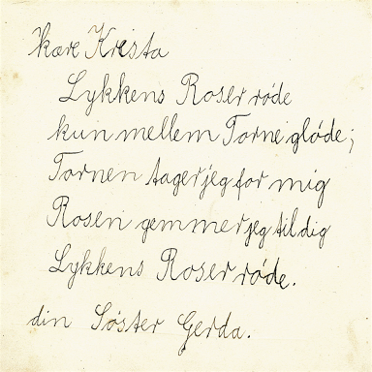 Kære Krista
Lykkens Roser røde
kun mellem Torne gløde;
Tornen tager jeg for mig
Rosen gemmer jeg til dig
Lykkens Roser røde.
din Søster Gerda.